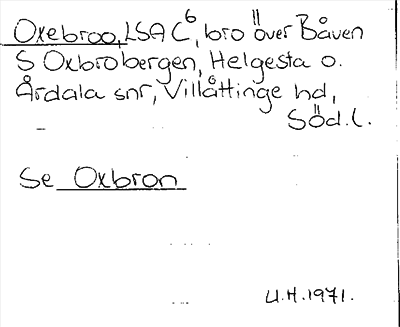 Oxebroo, LSA C6, bro över Båven
S Oxbrobergen, Helgesta o.
Årdala snr, Villåttinge hd,
Söd. l.
Se Oxbron
U.H. 1971.